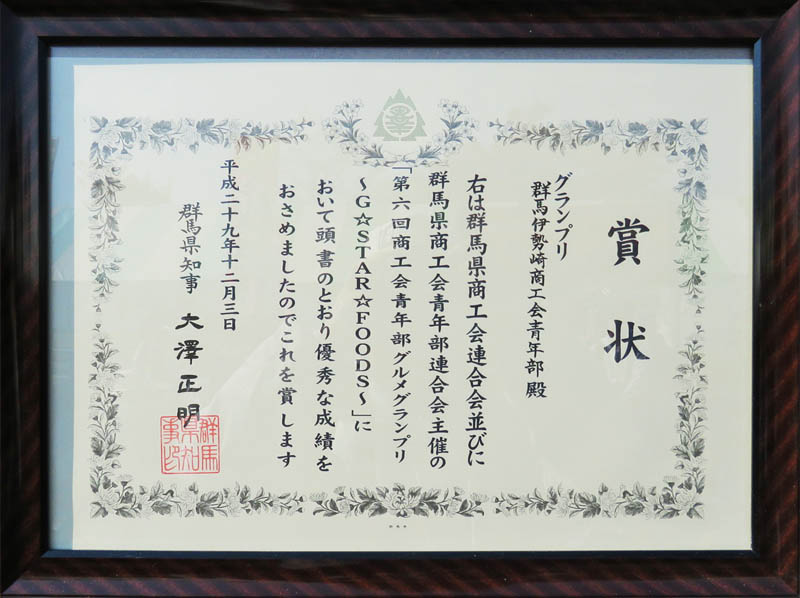 賞状
グランプリ
群馬伊勢崎商工会青年部 殿
右は群馬県商工会連合会並びに
群馬県商工会青年部連合会主催の
「第六回商工会青年部グルメグランプリ
～G☆STAR☆FOODS～」に
おいて頭書のとおり優秀な成績を
おさめましたのでこれを賞します
平成二十九年十二月三日
群馬県知事 大澤正明
群馬
県知
事印